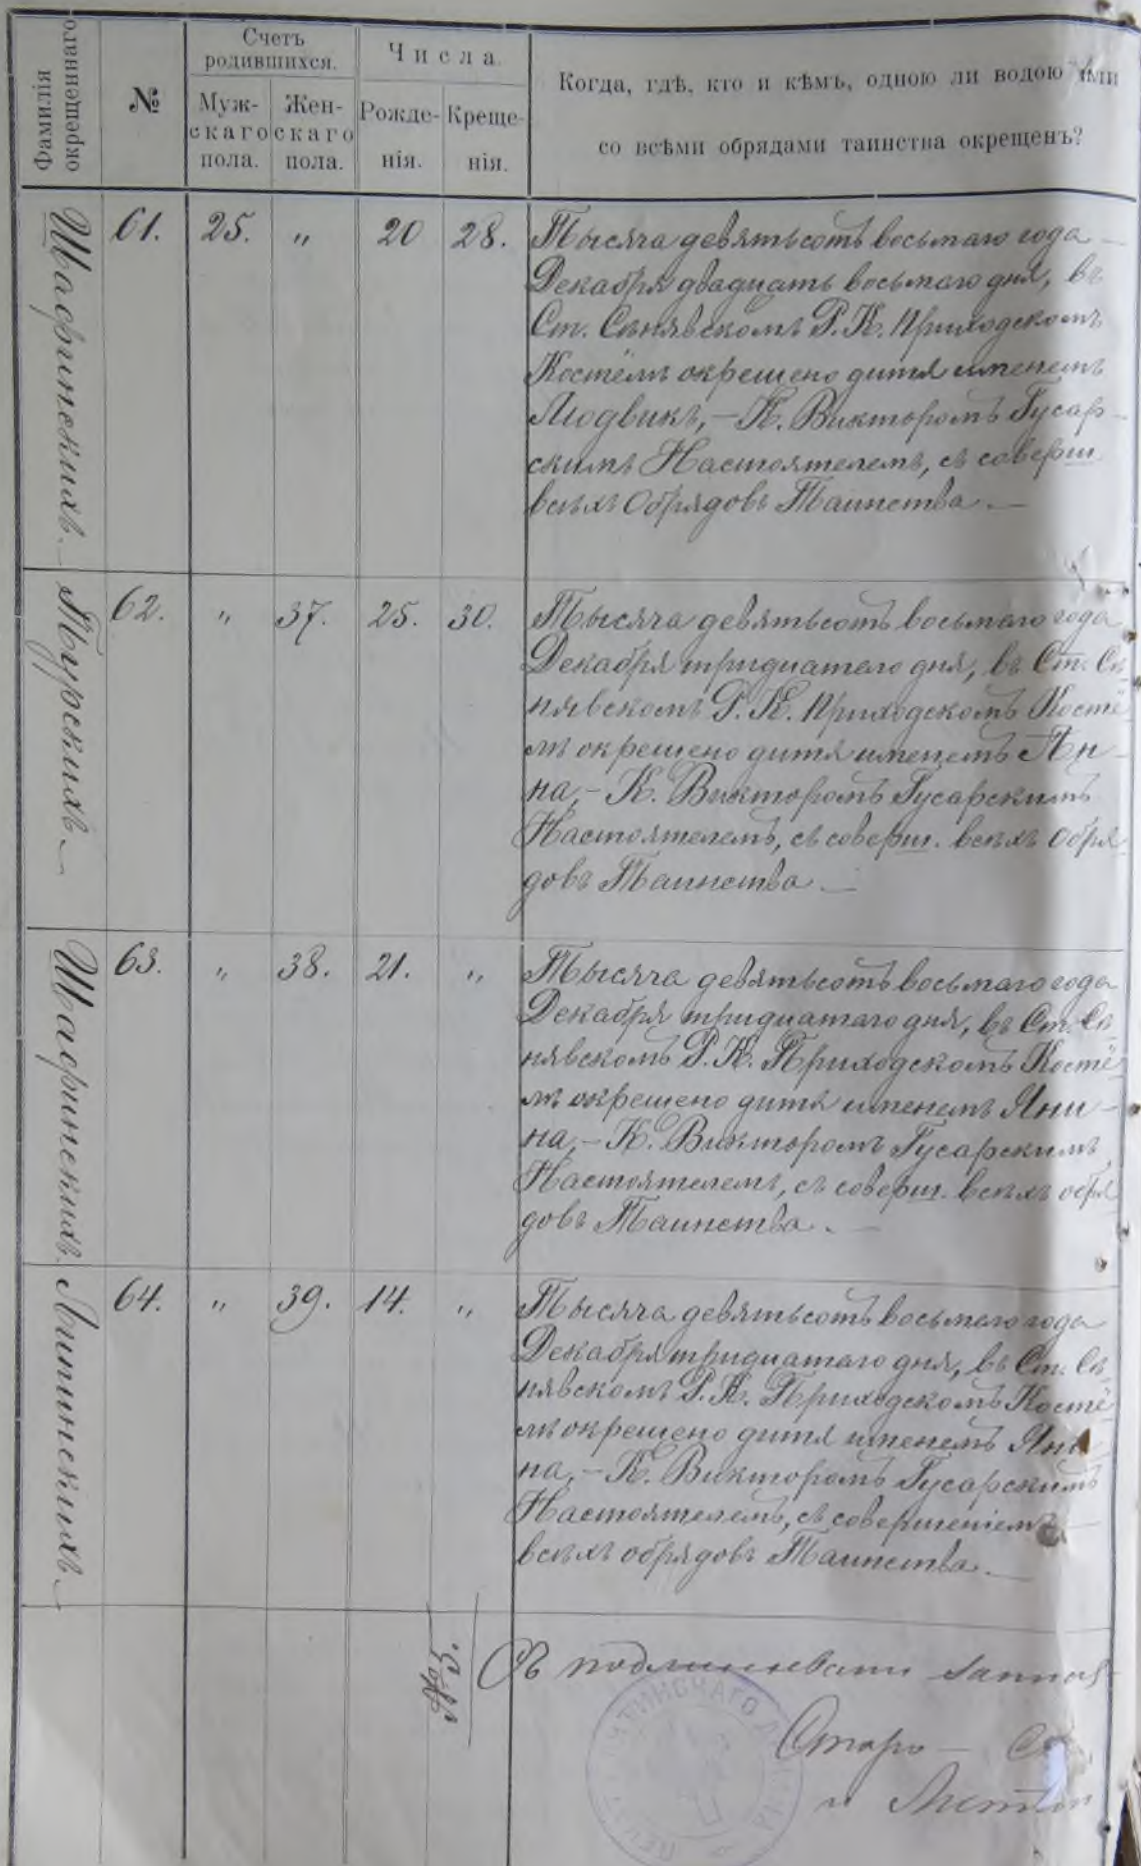 Фамилія окрещеннаго
№
Счетъ родившихся.
Муж-скаго пола.
Жен-скаго пола.
Числа.
Рожде-нія.
Креще-нія.
Когда, гдѣ, кто и кѣмъ, одною ли водою или
со всѣми обрядами таинства окрещенъ?
Шафинскихъ.
61. 25. " 20 28.
Тысяча девятьсотъ восьмаго года
Декабря двадцать восьмаго дня, въ
Ст. Сѣнявскомъ Р. К. Приходскомъ
Костёлѣ окрещено дитя именемъ
Людвикъ, – К. Викторомъ Гусар-
скимъ Настоятелемъ, съ соверш.
всѣхъ Обрядовъ Таинства. —
Турскихъ
62. " 37. 25. 30.
Тысяча девятьсотъ восьмаго года
Декабря тридцатаго дня, въ Ст. Сѣ-
нявскомъ Р. К. Приходскомъ Костё-
лѣ окрещено дитя именемъ Ан-
на, – К. Викторомъ Гусарскимъ
Настоятелемъ, съ соверш. всѣхъ Обря-
довъ Таинства —
Шафинскихъ
63. " 38. 21. "
Тысяча девятьсотъ восьмаго года
Декабря тридцатаго дня, въ Ст. Сѣ-
нявскомъ Р. К. Приходскомъ Костё-
лѣ окрещено дитя именемъ Яни-
на, – К. Викторомъ Гусарскимъ
Настоятелемъ, съ соверш. всѣхъ обря-
довъ Таинства. —
Липинскихъ
64. " 39. 14. "
Тысяча девятьсотъ восьмаго года
Декабря тридцатаго дня, въ Ст. Сѣ-
нявскомъ Р. К. Приходскомъ Костё-
лѣ окрещено дитя именемъ Яни-
на, – К. Викторомъ Гусарскимъ
Настоятелемъ, съ совершеніемъ
всѣхъ обрядовъ Таинства. —
Съ подлинными
Старо –
и